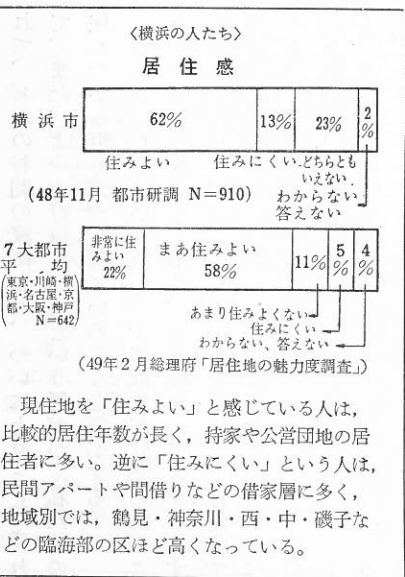 〈横浜の人たち〉
居住感
横浜市
62%
13%
23%
2%
住みよい
住みにくい
どちらともいえない
わからない
答えない
(48年11月 都市研調 N=910)
7大都市
平均
(東京・川崎・横
浜・名古屋・京
都・大阪・神戸
N=642)
非常に住
みよい
22%
まあ住みよい
58%
11%
5%
4%
あまり住みよくない
住みにくい
わからない、答えない
(49年2月総理府「居住地の魅力度調査」)
現住地を「住みよい」と感じている人は,
比較的居住年数が長く,持家や公営団地の居
住者に多い。逆に「住みにくい」という人は,
民間アパートや間借りなどの借家層に多く,
地域別では,鶴見・神奈川・西・中・磯子な
どの臨海部の区ほど高くなっている。